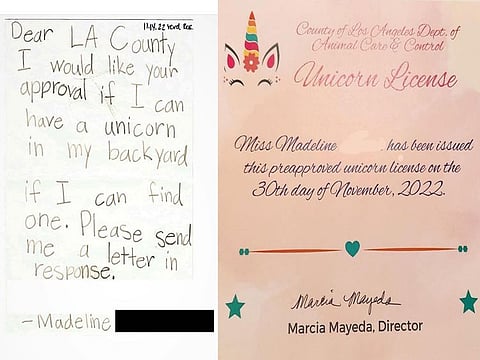 11.14.22 rcvd
Dear LA County
I would like your
approval if I can
have a unicorn
in my backyard
if I can find
one. Please send
me a letter in
response.
- Madeline
County of Los Angeles Dept. of
Animal Care & Control
Unicorn License
Miss Madeline has been issued
this preapproved unicorn license on the
30th day of November, 2022.
Marcia Mayeda
Marcia Mayeda, Director